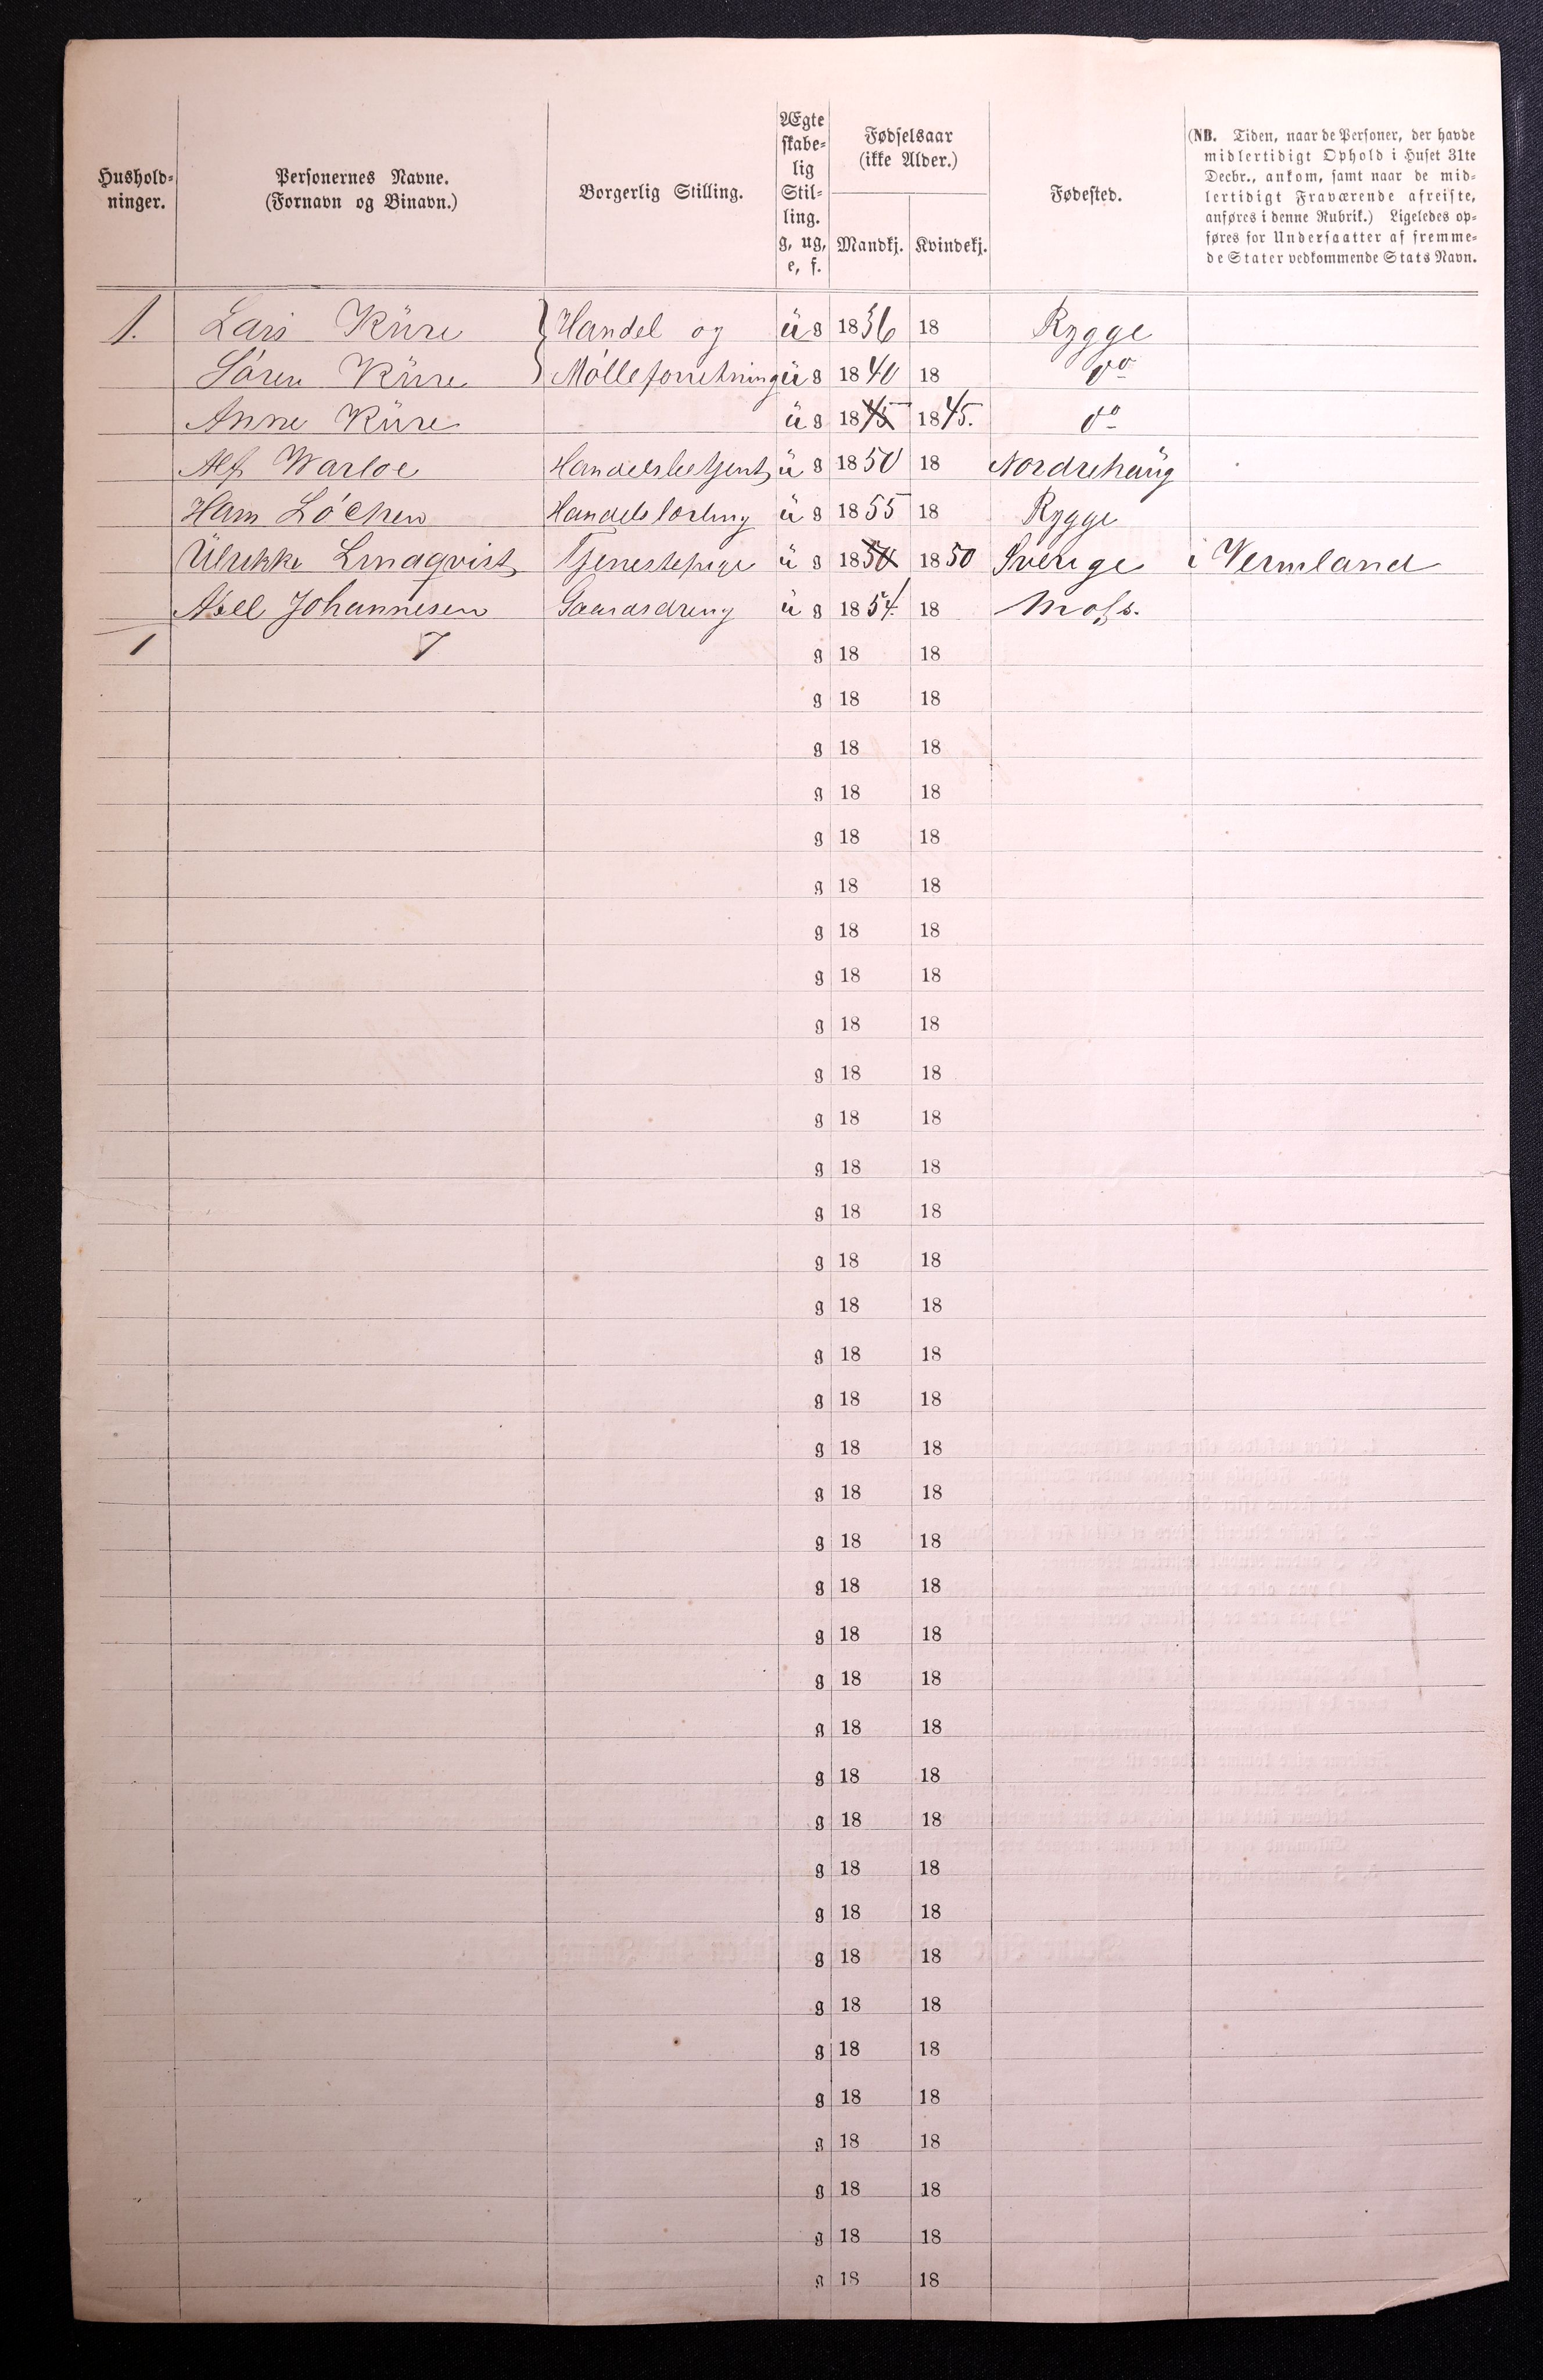 Hushold-
ninger.
Personernes Navne.
(Fornavn og Binavn.)
Borgerlig Stilling.
Ægte
skabe-
lig
Stil-
ling.
g, ug,
e, f.
Fødselsaar
(ikke Alder.)
Mandkj.
Kvindekj.
Fødested.
(NB. Tiden, naar de Personer, der havde
midlertidigt Ophold i Huset 31te
Decbr., ankom, samt naar de mid-
lertidigt Fraværende afreiste,
anføres i denne Rubrik.) Ligeledes op-
føres for Undersaatter af fremme-
de Stater vedkommende Stats Navn.
1. Lars Küre } Handel og ü g 1836 18 Rygge
Sören Küre } Mölleforretning ü g 1840 18 do
Anne Küre ü g 1845 1845. do
Alf Warloe Handelsbetjent ü g 1850 18 Nordrehaüg
Hans Lóchen Handelslærling ü g 1855 18 Rygge
Ülrikke Lindqvist Tjenestepige ü g 1850 1850 Sverige i Vermland
Axel Johannesen Gaardsdreng ü g 1854. 18 Moss.
1 7 g 18 18
g 18 18
g 18 18
g 18 18
g 18 18
g 18 18
g 18 18
g 18 18
g 18 18
g 18 18
g 18 18
g 18 18
g 18 18
g 18 18
g 18 18
g 18 18
g 18 18
g 18 18
g 18 18
g 18 18
g 18 18
g 18 18
g 18 18
g 18 18
g 18 18
g 18 18
g 18 18
g 18 18
g 18 18
g 18 18
g 18 18
g 18 18
g 18 18
g 18 18
g 18 18
g 18 18